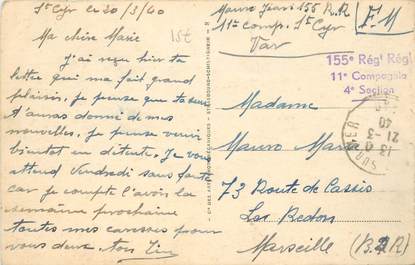 St Cyr le 20/3/40
15€
Ma chère Marie
J'ai reçu hier ta
lettre qui m'a fait grand
plaisir, je pense que ta
t'auras donné de mes
nouvelles, je pense venir
bientôt en détente, Je vous
attend Vendredi sans faute
car je compte l'avoir la
semaine prochaine
toutes mes caresses pour
vous deux ton
Mauro Jean 155 R.R
11e Comp. St Cyr
Var
F.M
155e Régt Régl
11e Compagnie
4e Section
Madame
Mauro
73 Route de Cassis
Les Redon
Marseille (B.d.R)